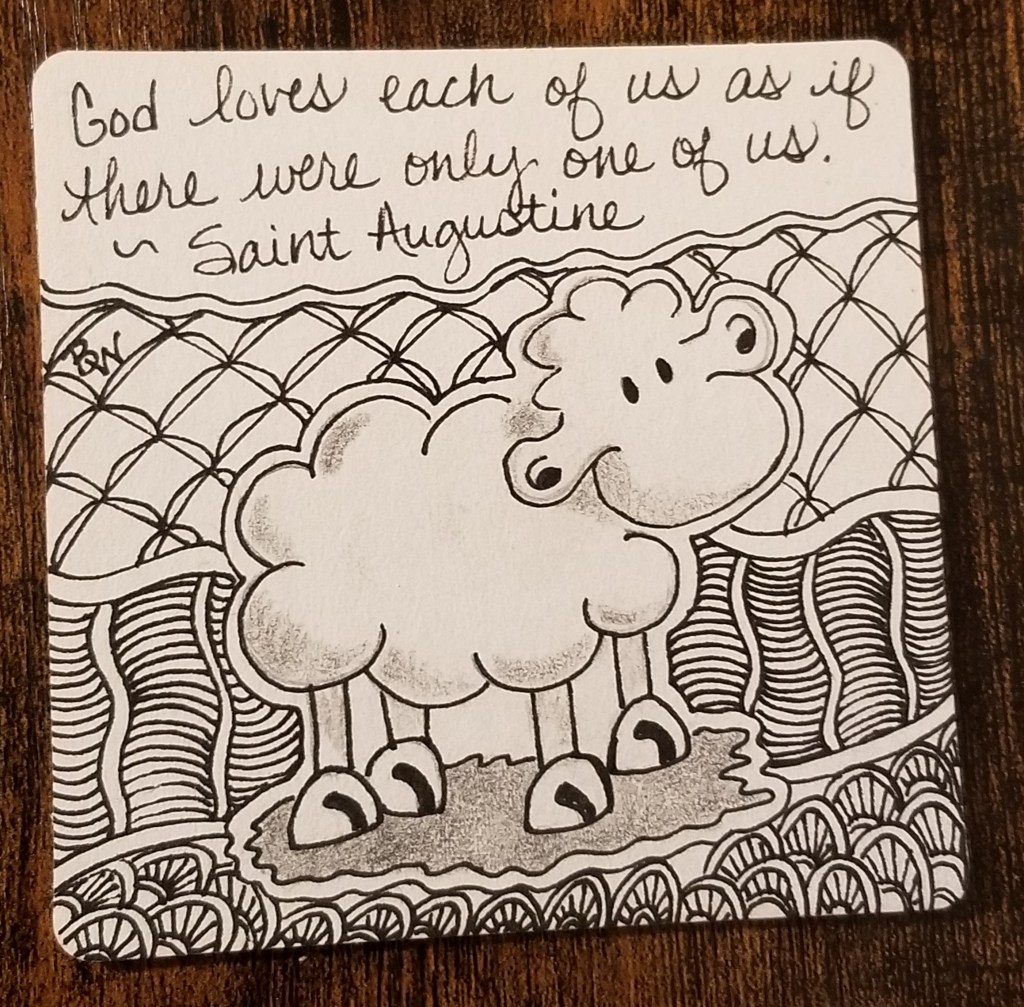 God loves each of us as if
there were only one of us.
~ Saint Augustine
BQW